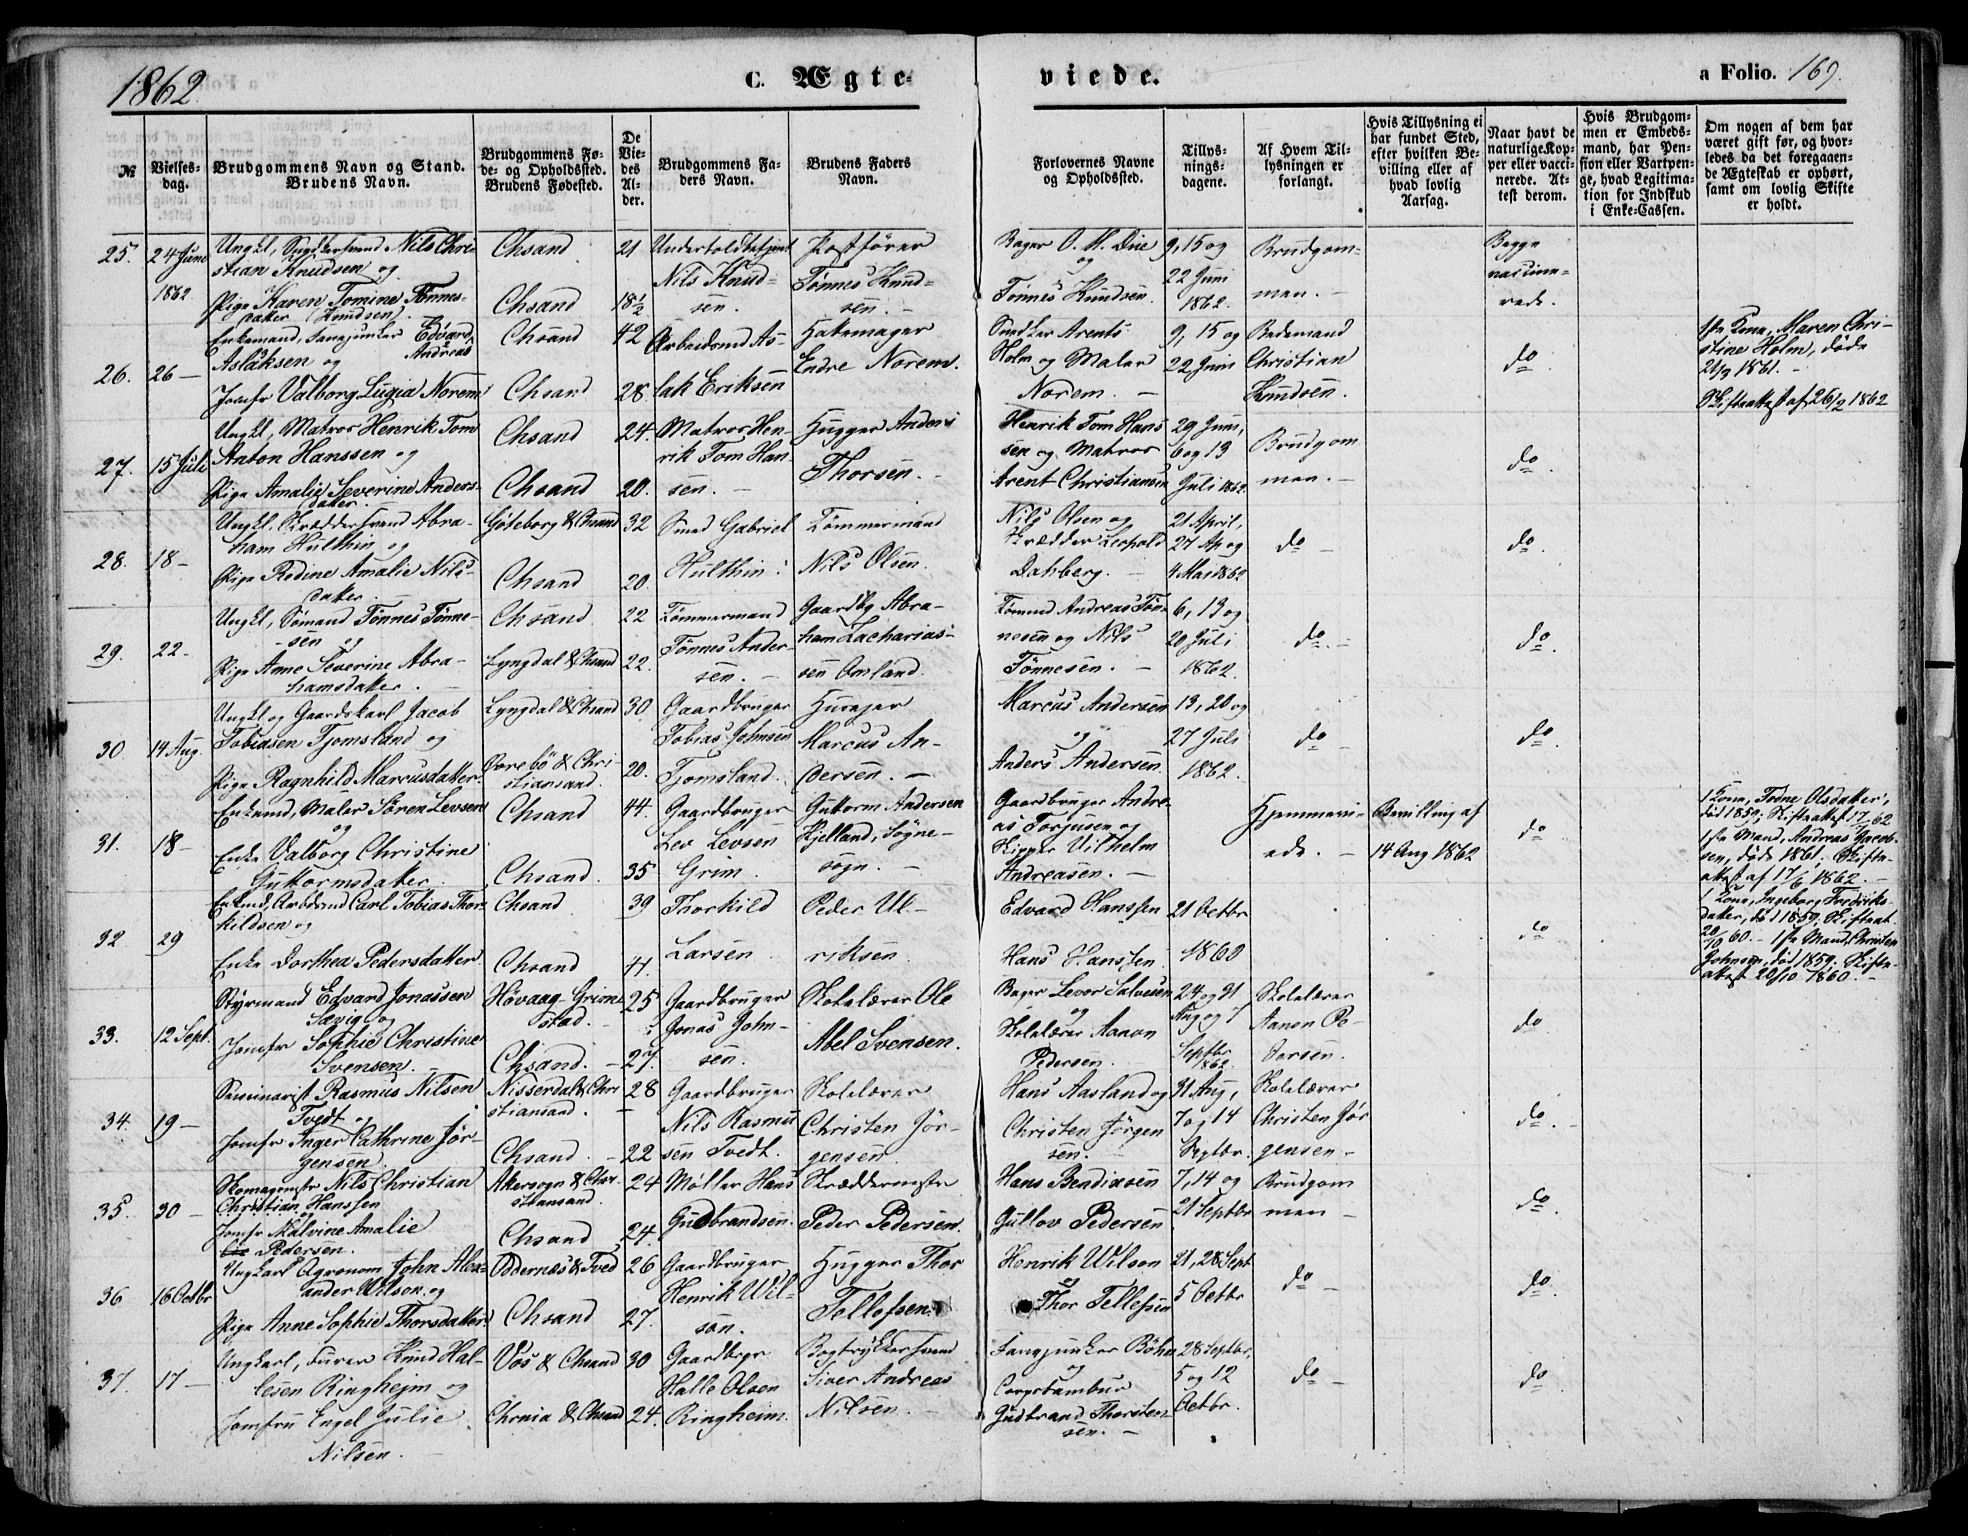 1862.
C. Ægteviede.
a Folio. 169.
№
Vielses-
dag.
Brudgommens Navn og Stand.
Brudens Navn.
Brudgommens Fø-
de- og Opholdssted.
Brudens Fødested.
De
Vie-
des
Al-
der.
Brudgommens Fa-
ders Navn.
Brudens Faders
Navn.
Forlovernes Navne
og Opholdssted.
Tillys-
nings-
dagene.
Af Hvem Til-
lysningen er
forlangt.
Hvis Tillysning ei
har fundet Sted,
efter hvilken Be-
villing eller af
hvad lovlig
Aarsag.
Naar havt de
naturlige Kop-
per eller vacci-
nerede. At-
test derom.
Hvis Brudgom-
men er Embeds-
mand, har Pen-
sion eller Vartpen-
ge, hvad Legitima-
tion for Indskud
i Enke-Cassen.
Om nogen af dem har
været gift før, og hvor-
ledes da det foregaaen-
de Ægteskab er ophørt,
samt om lovlig Skifte
er holdt.
25.
24 Juni
1862
Ungkl, Snedkersvend Nils Chri-
stian Knudsen og
Pige Karen Tomine Tønnes-
datter (Knudsen).
Chsand
Chsand
21
18½
Undertoldbetjent
Nils Knud-
sen.
Postfører
Tønnes Knud-
sen. -
Bager O. H. Due
og
Tønnes Knudsen.
9, 15 og
22 Juni
1862.
Brudgom-
men. -
Begge
vaccine-
rede.
26.
26 -
Enkemand, Fanejunker Edvard
Andreas
Aslaksen og
Jomfr Valborg Lugia Norem
Chsand
Chsand
42
28
Arbeidsmd As-
lak Eriksen
Hattemager
Endre Norem.
Snedker Arents
Holm og Maler
Norem. -
9, 15 og
22 Juni
Bedemand
Christian
Knudsen.
do
1ste Kone, Maren Chri-
stine Holm, døde
21/3 1861. -
Skifteattest af 26/2 1862
27.
15 Juli
Ungkl, Matros Henrik Tom
Anton Hanssen og
Pige Amalie Severine Anders-
datter.
Chsand
Chsand
24.
20.
Matros Hen-
rik Tom Han-
sen. -
Hugger Anders
Thorsen. -
Henrik Tom Hans
sen og Matros
Arent Christiansen
29 Juni,
6 og 13
Juli 1862.
Brudgom
men. -
do.
28.
18 -
Ungkl, Skræddersvend Abra-
ham Hulthin og
Pige Rodine Amalie Nils-
datter.
Göteborg & Chsand
Chsand
32
20.
Smed Gabriel
Hulthin.
Tømmermand
Nils Olsen.
Nils Olsen og
Skrædder Leopold
Dahberg. -
21 April,
27 Ap og
4 Mai 1862
do -
do.
29.
22 -
Ungkl, Sømand Tønnes Tønne-
sen og
Pige Anne Severine Abra-
hamsdatter. -
Chsand
Lyngdal & Chsand
22
22.
Tømmermand
Tønnes Ander-
sen. -
Gaardbg Abra-
ham Zacharias-
sen Omland.
Tømmd Andreas Tøn-
nesen og Nils
Tønnesen. -
6, 13 og
20 Juli
1862.
do. -
do.
30
14 Aug.
Ungkl og Gaardskarl Jacob
Tobiasen Tjomsland og
Pige Ragnhild Marcusdatter.
Lyngdal & Chsand
Torrebø & Chri-
stiansand.
30
20.
Gaardbruger
Tobias Johnsen
Tjomsland.
Huseier
Marcus An-
dersen. -
Marcus Andersen
og
Anders Andersen.
13, 20 og
27 Juli
1862.
do -
do.
31.
18 -
Enkemd, Maler Søren Levsen
og
Enke Valborg Christine
Guttormsdatter.
Chsand
Chsand.
44.
35
Gaardbruger
Lev Levsen
Grim.
Guttorm Andersen
Kjelland, Søgne-
sogn. -
Gaardbruger Andre-
as Torjusen og
Skipper Vilhelm
Andreasen. -
Hjemmevi-
ede. -
Bevilling af
14 Aug 1862
do
1 Kone, Tone Olsdatter,
død 1859; Skifteattest 17/6 62
1ste Mand, Andreas Jacob-
sen, døde 1861. Skifte-
attest af 17/6 1862. -
32
29
Enkmd, Arbdsmd Carl Tobias Thor-
kildsen og
Enke Dorthea Pedersdatter.
Chsand
Chsand
39
41.
Thorkild
Larsen
Peder Ul-
riksen
Edvard Hanssen
Hans Hanssen
21 Octbr
1860
do
1 Kone, Ingeborg Fredriks-
datter, død 1859. Skifteat
20/10 60. - 1ste Mand, Christen
Johnsen, død 1859. Skifte-
attest 20/10 1860. -
33.
12 Sept.
Styrmand Edvard Jonassen
Sævig og
Jomfr Sophie Christine
Svensen.
Høvaag - Grim-
stad. -
Chsand. -
25
27.
Gaardbruger
Jonas John-
sen.
Skolelærer Ole
Abel Svensen.
Bager Levor Salvesen
og
Skolelærer Aanon
Pedersen.
24 og 31
Aug og 7
Septbr
1862.
Skolelærer
Aanon Pe-
dersen.
do
34
19 -
Seminarist Rasmus Nilsen
Tvedt og
Jomfr Inger Cathrine Jør-
gensen.
Nisserdal & Chri
stiansand.
Chsand. -
28
22
Gaardbruger
Nils Rasmu
sen Tvedt.
Skolelærer
Christen Jør-
gensen.
Hans Aasland og
Christen Jørgen
sen. -
31 Aug,
7 og 14
Septbr.
Skolelærer
Christen Jør
gensen -
do. -
35.
30 -
Skomagermstr Nils Christian
Christian Hanssen
og
Jomfr Malvine Amalie
Pedersen.
Akersogn & Chri-
stiansand
Chsand
24
24.
Møller Hans
Gudbrandsen.
Skræddermstr
Peder Pedersen.
Hans Bendixsen
Gullov Pedersen
7, 14 og
21 Septbr
Brudgom
men -
do.
36
16 Octbr
Ungkarl Agronom John Alex-
ander Wilson og
Pige Anne Sophie Thorsdatter.
Oddernæs & Tved
Chsand
26
27.
Gaardbruger
Henrik Wil-
son.
Hugger Thor
Tellefsen.
Henrik Wilson
og
Thor Tellefsen
21, 28 Sept
5 Octbr
do -
do.
37.
17 -
Ungkarl, Furer Knud Hal-
lesen Ringheim og
Jomfru Engel Julie
Nilsen. -
Vos & Chsand
Chrnia & Chsand
30
24.
Gaardbrgr
Halle Olsen
Ringheim.
Bogtrykkersvend
Siver Andreas
Nilsen. -
Fanejunker Bøhn
og
Corpstambur
Gudbrand Thorsten-
sen. -
28 Septbr,
5 og 12
Octbr.
do -
do.